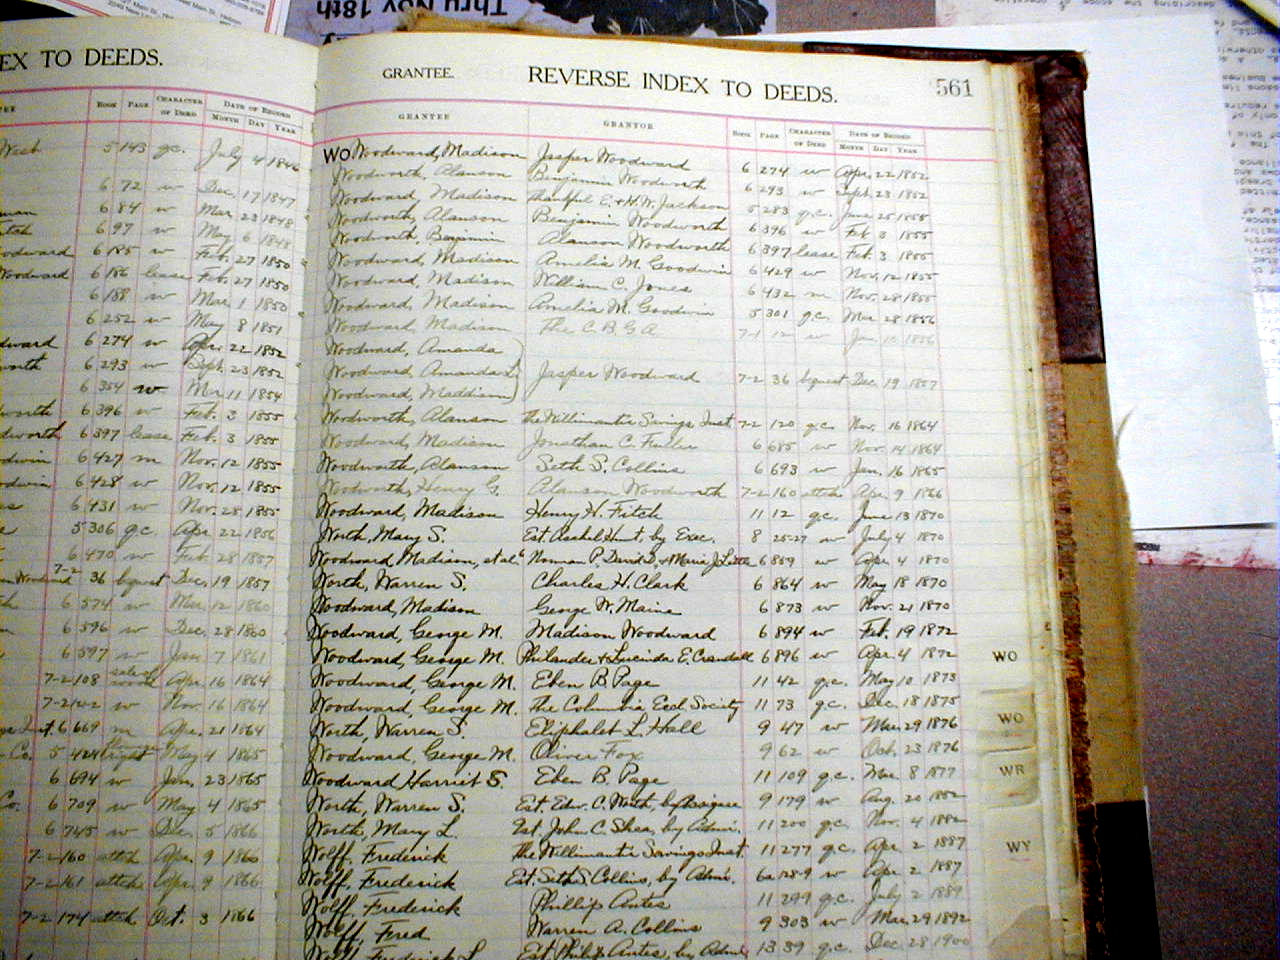 Thru Nov 18th
EX TO DEEDS.
BOOK PAGE CHARACTER OF DEED DATE OF RECORD MONTH DAY YEAR
5 143 q.c. July 4 1846
6 72 w Dec. 17 1847
6 84 w Mar. 23 1848
6 97 w May 6 1848
6 185 w Feb. 27 1850
6 186 lease Feb. 27 1850
6 188 w Mar. 1 1850
6 252 w May 8 1851
6 274 w Apr. 22 1852
6 293 w Sept. 23 1852
6 354 w Mar. 11 1854
6 396 w Feb. 3 1855
6 397 lease Feb. 3 1855
6 427 m Nov. 12 1855
6 428 w Nov. 12 1855
6 431 w Nov. 28 1855
5 306 q.c. Apr. 22 1856
6 470 w Feb. 28 1857
7-2 36 bequest Dec. 19 1857
6 574 w Mar. 12 1860
6 596 w Dec. 28 1860
6 597 w Jan. 7 1861
7-2 108 Apr. 16 1864
7-2 122 w Nov. 16 1864
6 669 m Apr. 21 1864
Co. 5 424 May 4 1865
6 694 w Jan. 23 1865
Co. 6 709 w May 4 1865
6 745 w Dec. 5 1866
7-2 160 attch Apr. 9 1866
7-2 161 attch Apr. 9 1866
7-2 174 attch Oct. 3 1866
GRANTEE. REVERSE INDEX TO DEEDS. 561
GRANTEE GRANTOR BOOK PAGE CHARACTER OF DEED DATE OF RECORD MONTH DAY YEAR
WO Woodward, Madison Jasper Woodward 6 274 w Apr. 22 1852
Woodworth, Alanson Benjamin Woodworth 6 293 w Sept. 23 1852
Woodward, Madison Thankful E. + H.W. Jackson 5 283 q.c. June 25 1855
Woodworth, Alanson Benjamin Woodworth 6 396 w Feb. 3 1855
Woodworth, Benjamin Alanson Woodworth 6 397 lease Feb. 3 1855
Woodward, Madison Amelia M. Goodwin 6 429 w Nov. 12 1855
Woodward, Madison William C. Jones 6 432 m Nov. 28 1855
Woodward, Madison Amelia M. Goodwin 5 301 q.c. Mar. 28 1856
Woodward, Madison The C.B.G.A. 7-1 12 w Jan. 1856
Woodward, Amanda
Woodward, Amanda L. Jasper Woodward 7-2 36 bequest Dec. 19 1857
Woodward, Maddison
Woodworth, Alanson the Willimantic Savings Inst. 7-2 120 q.c. Nov. 16 1864
Woodward, Madison Jonathan C. Fuller 6 685 w Nov. 14 1864
Woodworth, Alanson Seth S. Collins 6 693 w Jan. 16 1865
Woodworth, Henry G. Alanson Woodworth 7-2 160 attch Apr. 9 1866
Woodward, Madison Henry H. Fitch 11 12 q.c. June 13 1870
Worth, Mary S. Est. Asahel Hunt, by Exec. 8 25-27 w July 4 1870
Woodward, Madison, et al. Norman P., David D, + Maria J. Little 6 859 w Apr. 4 1870
Worth, Warren S. Charles H. Clark 6 864 w May 18 1870
Woodward, Madison George W. Maine 6 873 w Nov. 21 1870
Woodward, George M. Madison Woodward 6 894 w Feb. 19 1872
Woodward, George M. Philander + Lucinda E. Crandall 6 896 w Apr. 4 1872
Woodward, George M. Eben B. Page 11 42 q.c. May 10 1873
Woodward, George M. The Columbia Eccl. Society 11 73 q.c. Dec. 18 1875
Worth, Warren S. Eliphalet L. Hall 9 47 w Mar. 29 1876
Woodward, George M. Oliver Fox 9 62 w Oct. 23 1876
Woodward Harriet S. Eben B. Page 11 109 q.c. Mar. 8 1877
Worth, Warren S. Est. Edw. C. Worth, by Assignee 9 179 w Aug. 20 1882
Worth, Mary L. Est. John C. Shea, by Admr. 11 200 q.c. Nov. 4 1882
Wolff, Frederick the Willimantic Savings Inst. 11 277 q.c. Apr. 2 1887
Wolff, Frederick Est. Seth S. Collins, by Admr. 6a 128-9 w Apr. 2 1887
Wolff, Frederick Phillip Antes 11 299 q.c. July 2 1889
Wolff, Fred Warren A. Collins 9 303 w Mar. 29 1892
Wolff, Frederick L. Est. Philip Antes, by Admr. 13 39 q.c. Dec. 28 1900
WO
WO
WR
WY